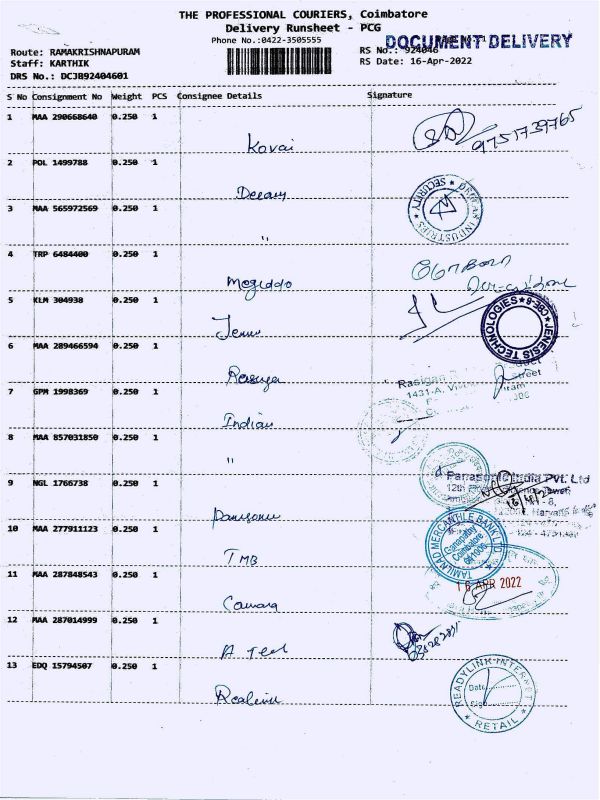 THE PROFESSIONAL COURIERS, Coimbatore
Delivery Runsheet - PCG
Phone No.:0422-3505555
DOCUMENT DELIVERY
Route: RAMAKRISHNAPURAM
RS No.: 924046
Staff: KARTHIK
RS Date: 16-Apr-2022
DRS No.: DCJB92404601
S No Consignment No Weight PCS Consignee Details Signature
1 MAA 290668640 0.250 1
Kovai
9751739765
2 POL 1499788 0.250 1
3 MAA 565972569 0.250 1
"
INDUSTRIES ★ SECURITY ★
4 TRP 6484400 0.250 1
Megiddo
5 KLM 304938 0.250 1
JENESIS TECHNOLOGIES ★ CBE-6 ★
6 MAA 289466594 0.250 1
Rasiga
Rasigan
Street
1431-A,
7 GPM 1998369 0.250 1
Indian
8 MAA 857031850 0.250 1
"
9 NGL 1766738 0.250 1
Panasonic
Panasonic India Pvt. Ltd
12th
10 MAA 277911123 0.250 1
TMB
TAMILNAD MERCANTILE BANK LTD
Ganapathy
Coimbatore
641006
11 MAA 287848543 0.250 1
Canara
16 APR 2022
12 MAA 287014999 0.250 1
A Tech
13 EDQ 15794507 0.250 1
READYLINK INTERNET
Date
Sig
★ RETAIL ★